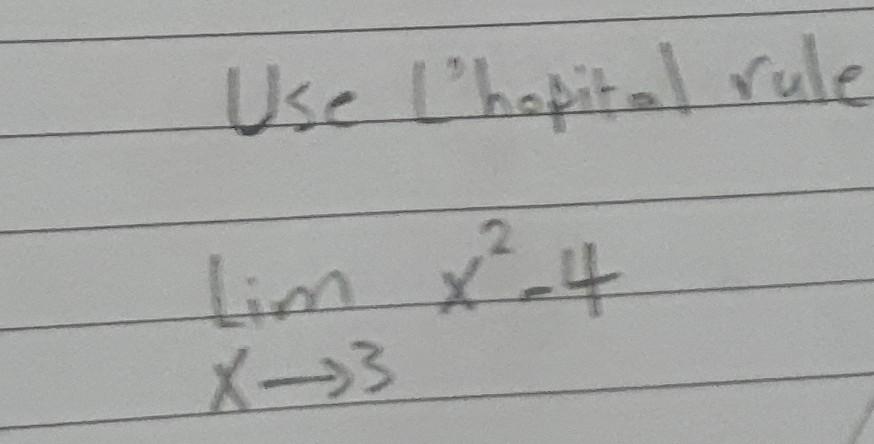 Use L'hopital rule
lim x² - 4
x → 3